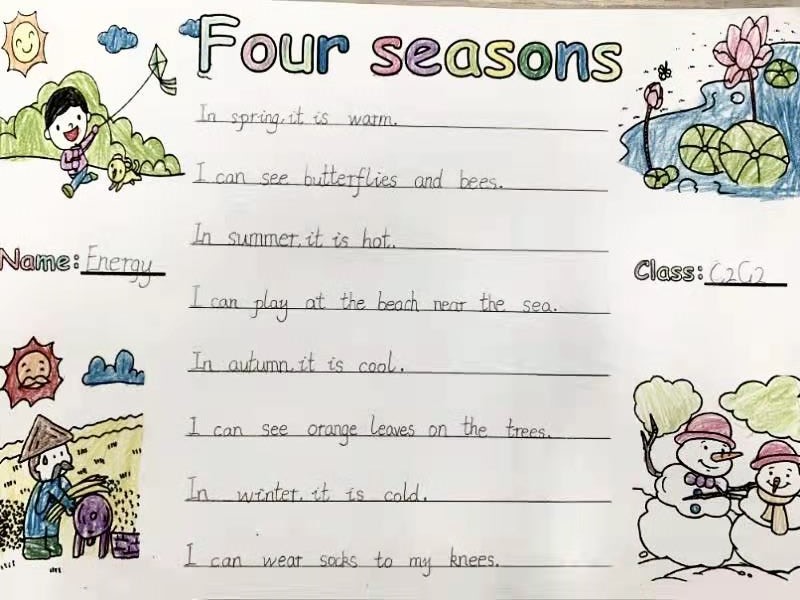 Four seasons
In spring, it is warm.
I can see butterflies and bees.
In summer, it is hot.
Name: Energy
Class: C2C2
I can play at the beach near the sea.
In autumn, it is cool.
I can see orange leaves on the trees.
In winter, it is cold.
I can wear socks to my knees.